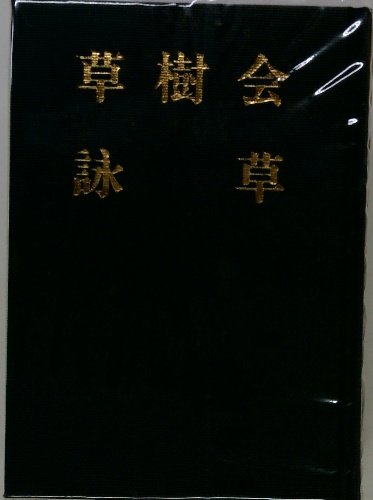 草樹会
詠草